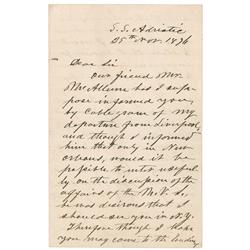 S. S. Adriatic
25th Nov. 1876
Dear Sir
Our friend Mr.
McAllum has I sup-
pose informed you,
by Cablegram of my
departure from Liverpool,
and though I informed
him that only in New
Orleans, would it be
possible to enter usefully
on the discussion of the
affairs of the M. V. Co,
he was desirous that I
should see you in N.Y.
Therefore though I hope
you may come to the landing